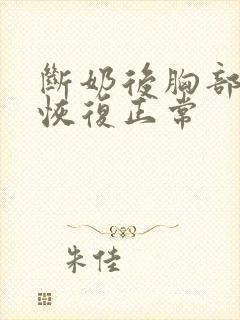 斷奶後胸部
恢復正常
朱佳